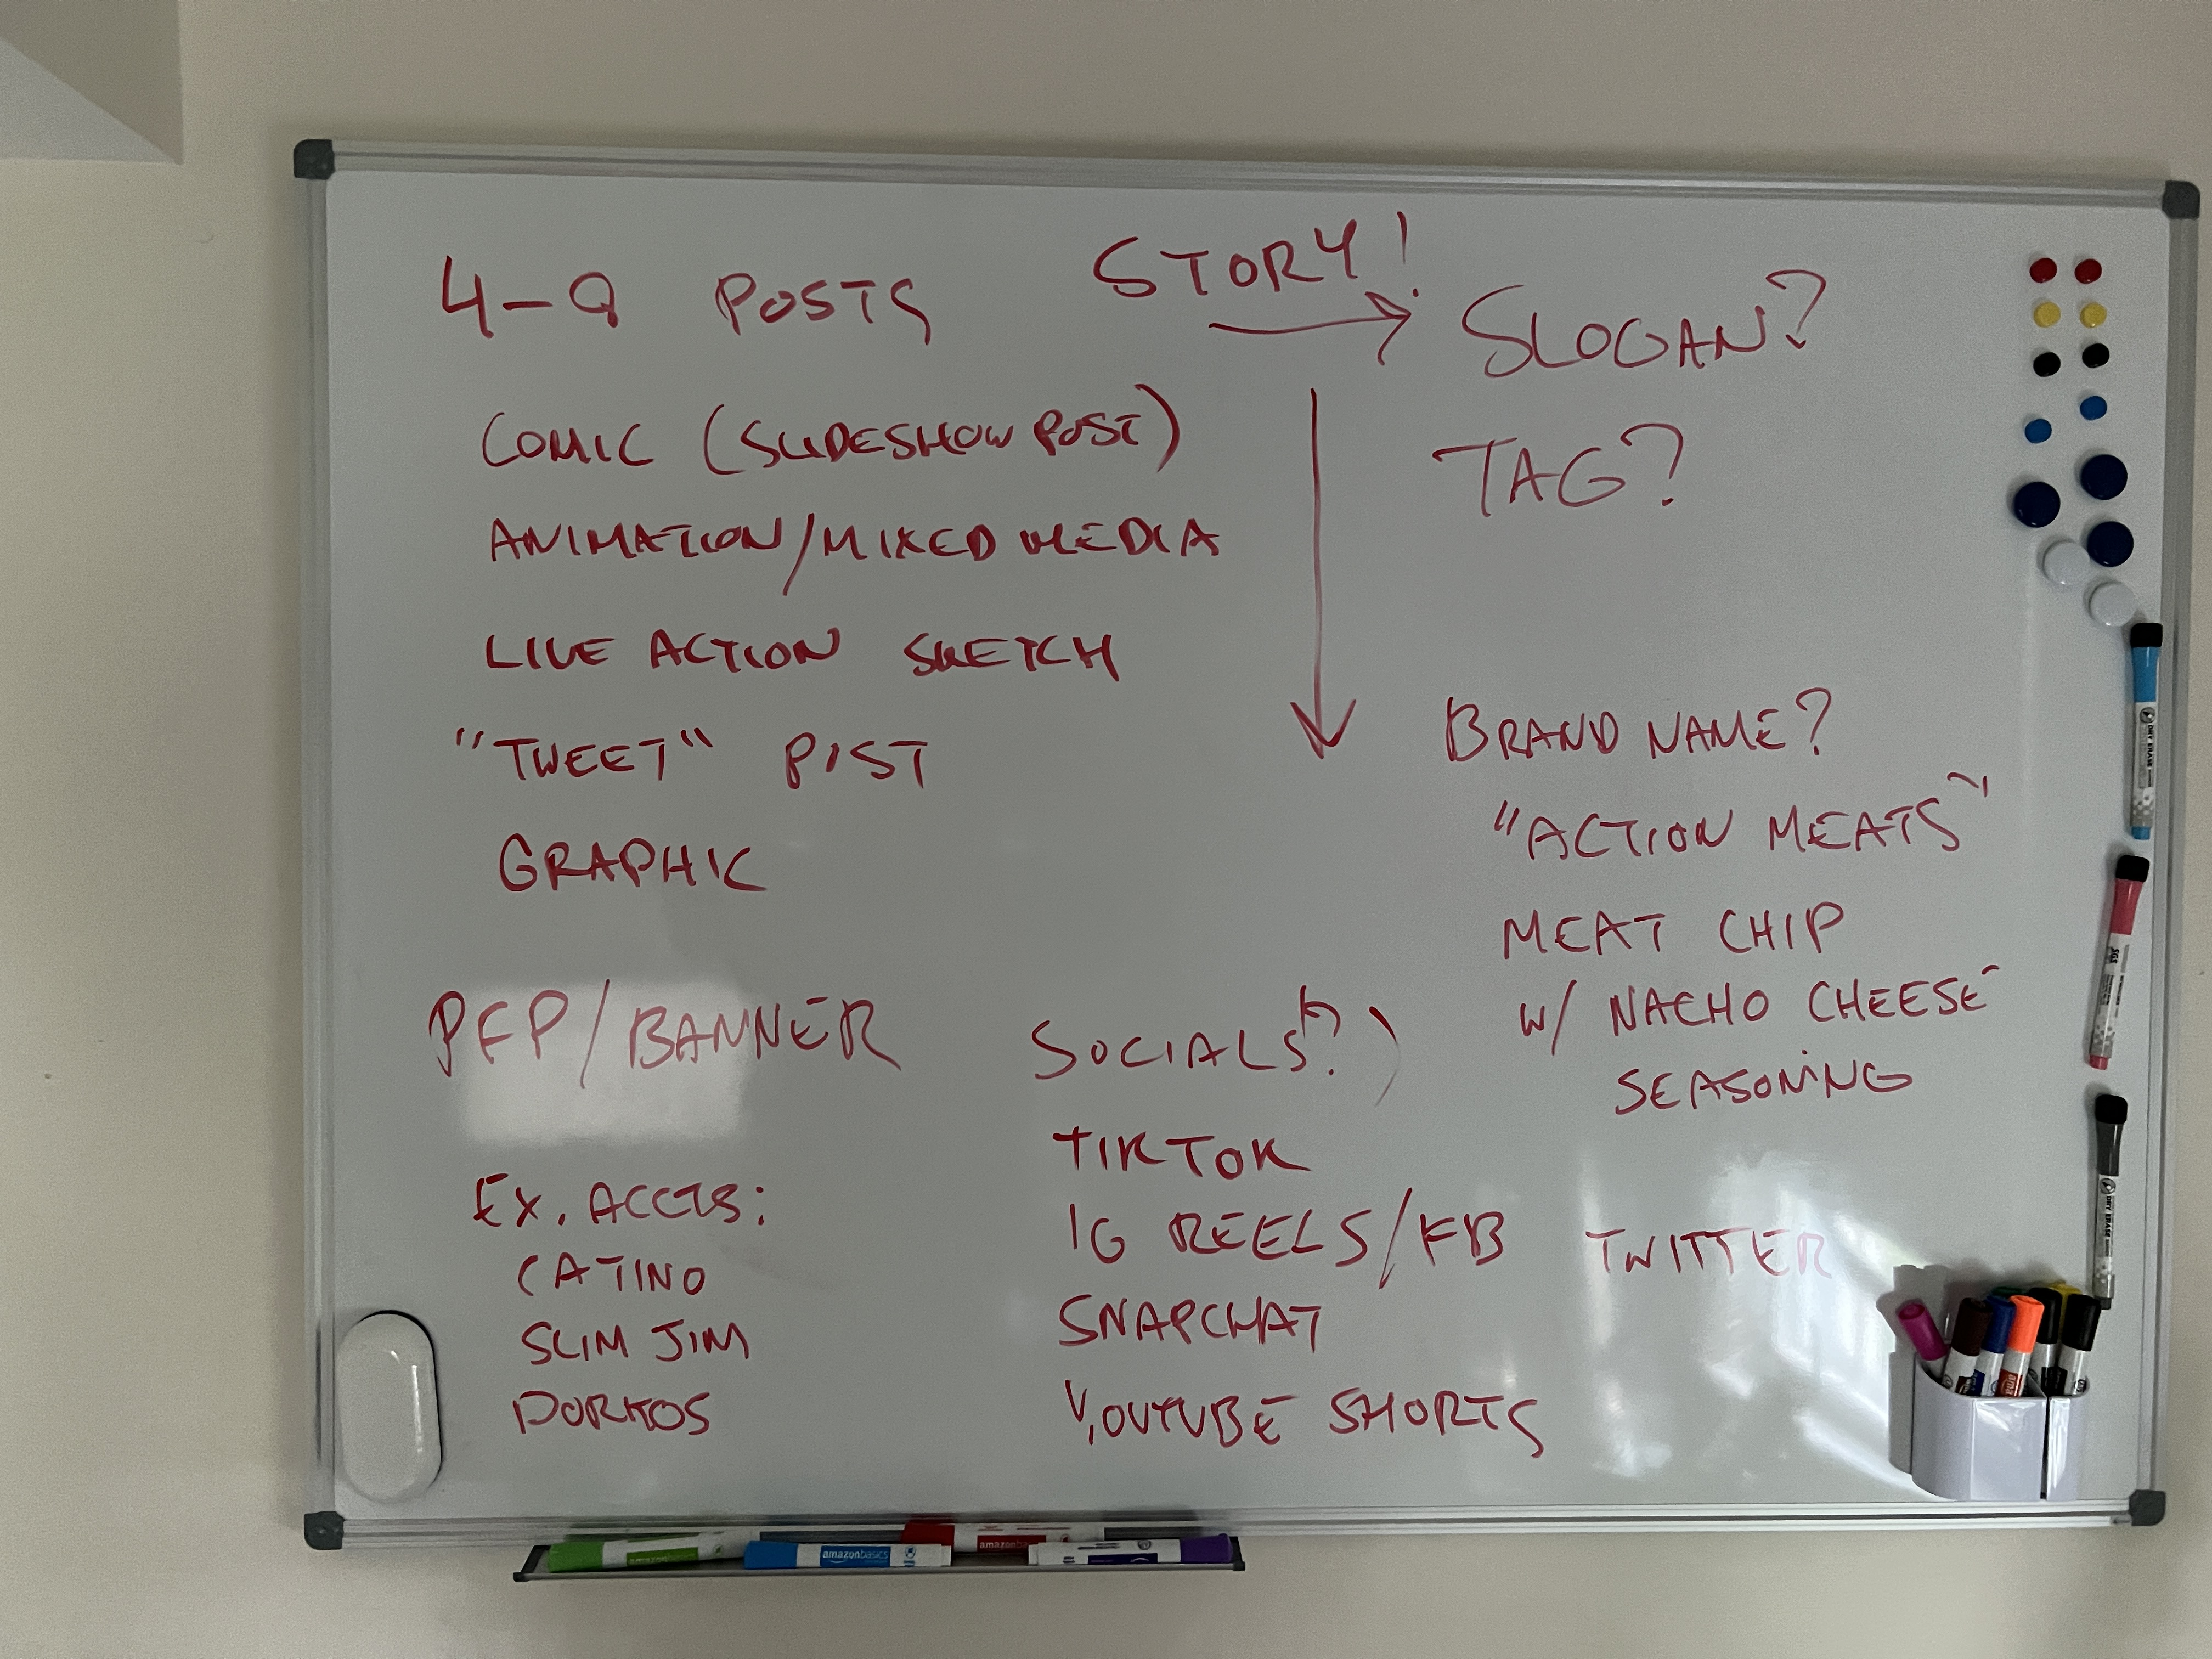 4-9 POSTS
COMIC (SLIDESHOW POST)
ANIMATION/MIXED MEDIA
LIVE ACTION SKETCH
"TWEET" POST
GRAPHIC
STORY!
SLOGAN?
TAG?
BRAND NAME?
"ACTION MEATS"
MEAT CHIP
W/ NACHO CHEESE
SEASONING
PFP/BANNER
EX. ACCTS:
CATINO
SLIM JIM
DORITOS
SOCIALS?
TIKTOK
IG REELS/FB TWITTER
SNAPCHAT
YOUTUBE SHORTS
amazonbasics
amazonbasics
DRY ERASE
DRY ERASE